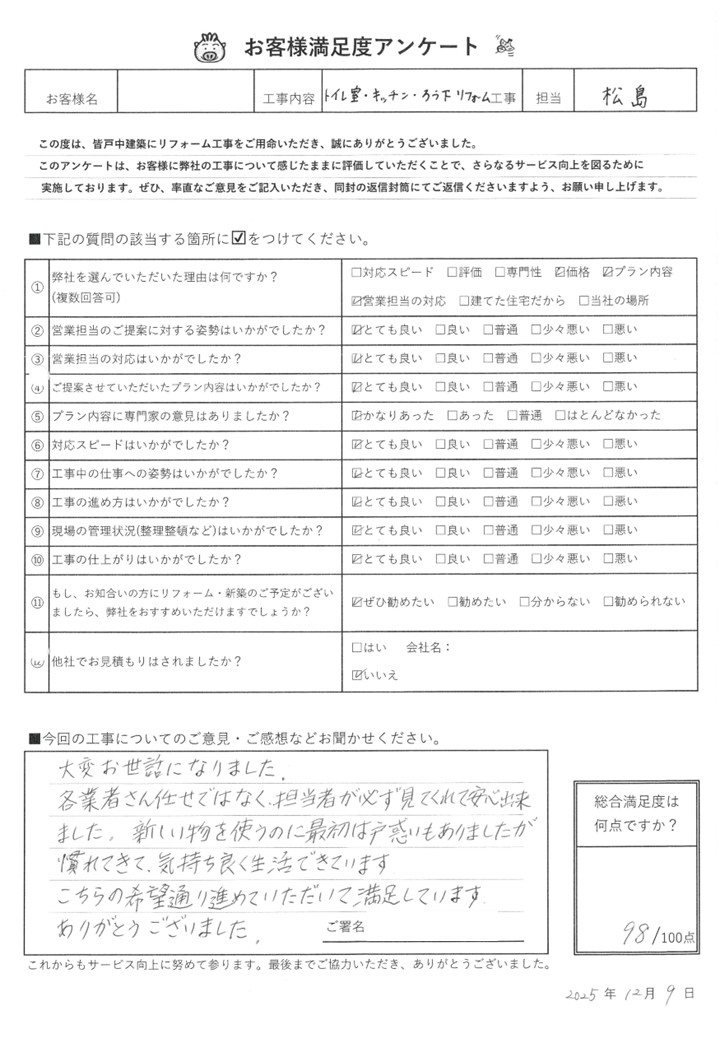 お客様満足度アンケート
お客様名 工事内容 トイレ室・キッチン・ろう下リフォーム工事 担当 松島
この度は、皆戸中建築にリフォーム工事をご用命いただき、誠にありがとうございました。
このアンケートは、お客様に弊社の工事について感じたままに評価していただくことで、さらなるサービス向上を図るために
実施しております。ぜひ、率直なご意見をご記入いただき、同封の返信封筒にてご返信くださいますよう、お願い申し上げます。
■下記の質問の該当する箇所に☑をつけてください。
① 弊社を選んでいただいた理由は何ですか？ □対応スピード □評価 □専門性 ☑価格 ☑プラン内容
(複数回答可) ☑営業担当の対応 □建てた住宅だから □当社の場所
② 営業担当のご提案に対する姿勢はいかがでしたか？ ☑とても良い □良い □普通 □少々悪い □悪い
③ 営業担当の対応はいかがでしたか？ ☑とても良い □良い □普通 □少々悪い □悪い
④ ご提案させていただいたプラン内容はいかがでしたか？ ☑とても良い □良い □普通 □少々悪い □悪い
⑤ プラン内容に専門家の意見はありましたか？ ☑かなりあった □あった □普通 □ほとんどなかった
⑥ 対応スピードはいかがでしたか？ ☑とても良い □良い □普通 □少々悪い □悪い
⑦ 工事中の仕事への姿勢はいかがでしたか？ ☑とても良い □良い □普通 □少々悪い □悪い
⑧ 工事の進め方はいかがでしたか？ ☑とても良い □良い □普通 □少々悪い □悪い
⑨ 現場の管理状況(整理整頓など)はいかがでしたか？ ☑とても良い □良い □普通 □少々悪い □悪い
⑩ 工事の仕上がりはいかがでしたか？ ☑とても良い □良い □普通 □少々悪い □悪い
⑪ もし、お知合いの方にリフォーム・新築のご予定がござい
ましたら、弊社をおすすめいただけますでしょうか？ ☑ぜひ勧めたい □勧めたい □分からない □勧められない
⑫ 他社でお見積もりはされましたか？ □はい 会社名：
☑いいえ
■今回の工事についてのご意見・ご感想などお聞かせください。
大変お世話になりました。
各業者さん任せではなく、担当者が必ず見てくれて安心出来
ました。新しい物を使うのに最初は戸惑いもありましたが
慣れてきて、気持ち良く生活できています
こちらの希望通り進めていただいて満足しています
ありがとうございました。
ご署名
総合満足度は
何点ですか？
98/100点
これからもサービス向上に努めて参ります。最後までご協力いただき、ありがとうございました。
2025年12月9日